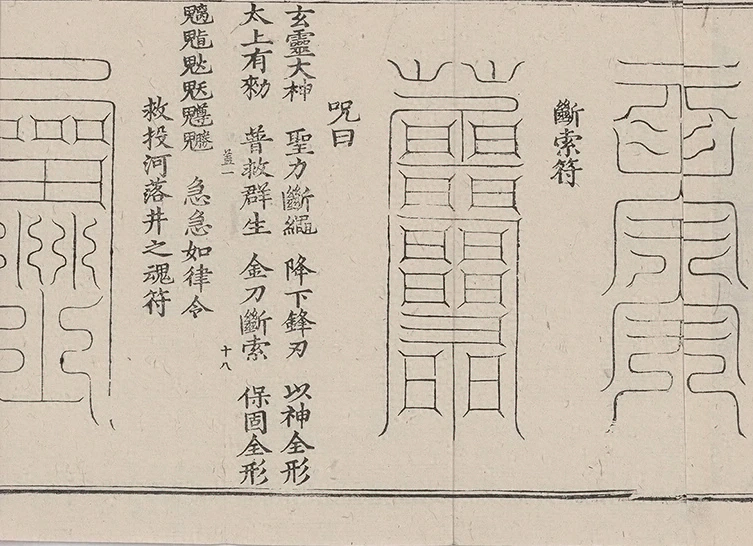 斷索符
呪曰
玄靈大神 聖力斷繩 降下鋒刃 以神全形
太上有勑 普救群生 金刀斷索 保固全形
十八
急急如律令
救投河落井之魂符